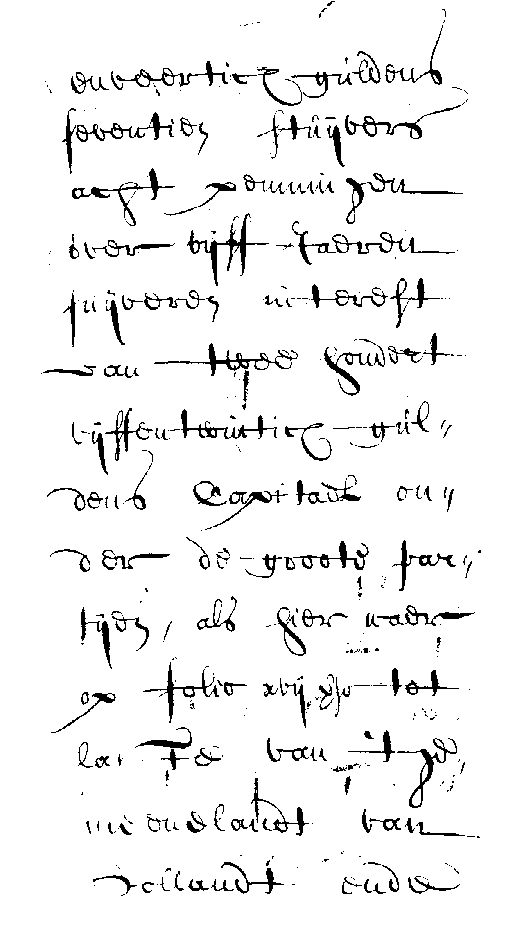 enveertich guldens
seventien stuijvers
acht penningen
over vijff Jaeren
suijveren interest
van twee hondert
vijffentwintich gul„
dens Capitael on„
der de groote par„
tijen, als hier naer
op folio xvij tot
laste van 't ge„
meenelandt van
Hollandt ende